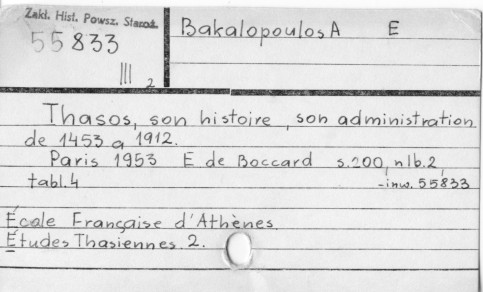 Zakł. Hist. Powsz. Staroż.
55833
III 2
Bakalopoulos A E
Thasos, son histoire, son administration
de 1453 a 1912.
Paris 1953 E de Boccard s.200, nlb.2,
tabl.4 -inw. 55833
École Française d'Athènes.
Études Thasiennes. 2.